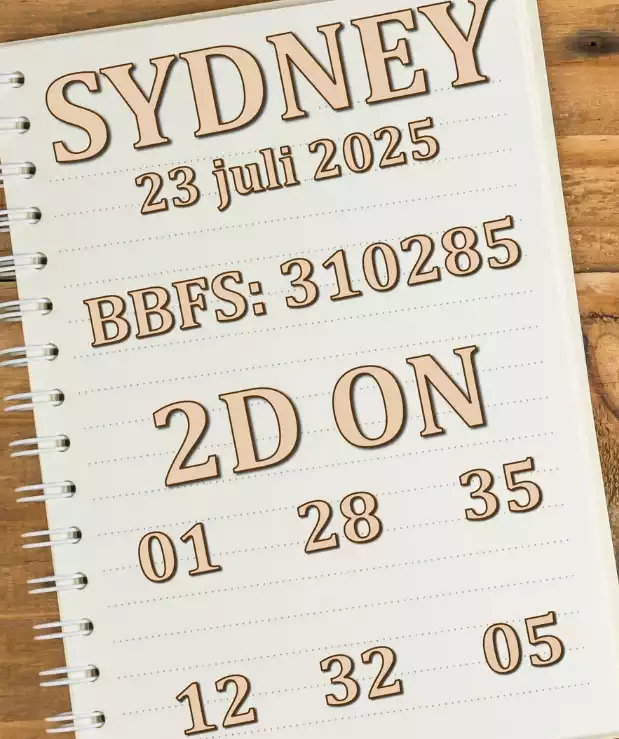 SYDNEY
23 juli 2025
BBFS: 310285
2D ON
01 28 35
12 32 05